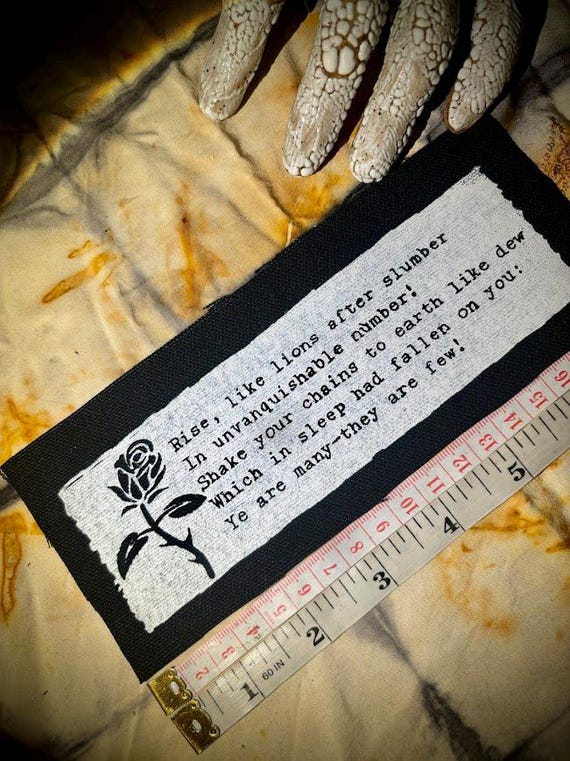 Rise, like lions after slumber
In unvanquishable number!
Shake your chains to earth like dew
Which in sleep had fallen on you:
Ye are many—they are few!
2 3 4 5 6 7 8 9 10 11 12 13 14 15 16
1 60 IN 2 3 4 5